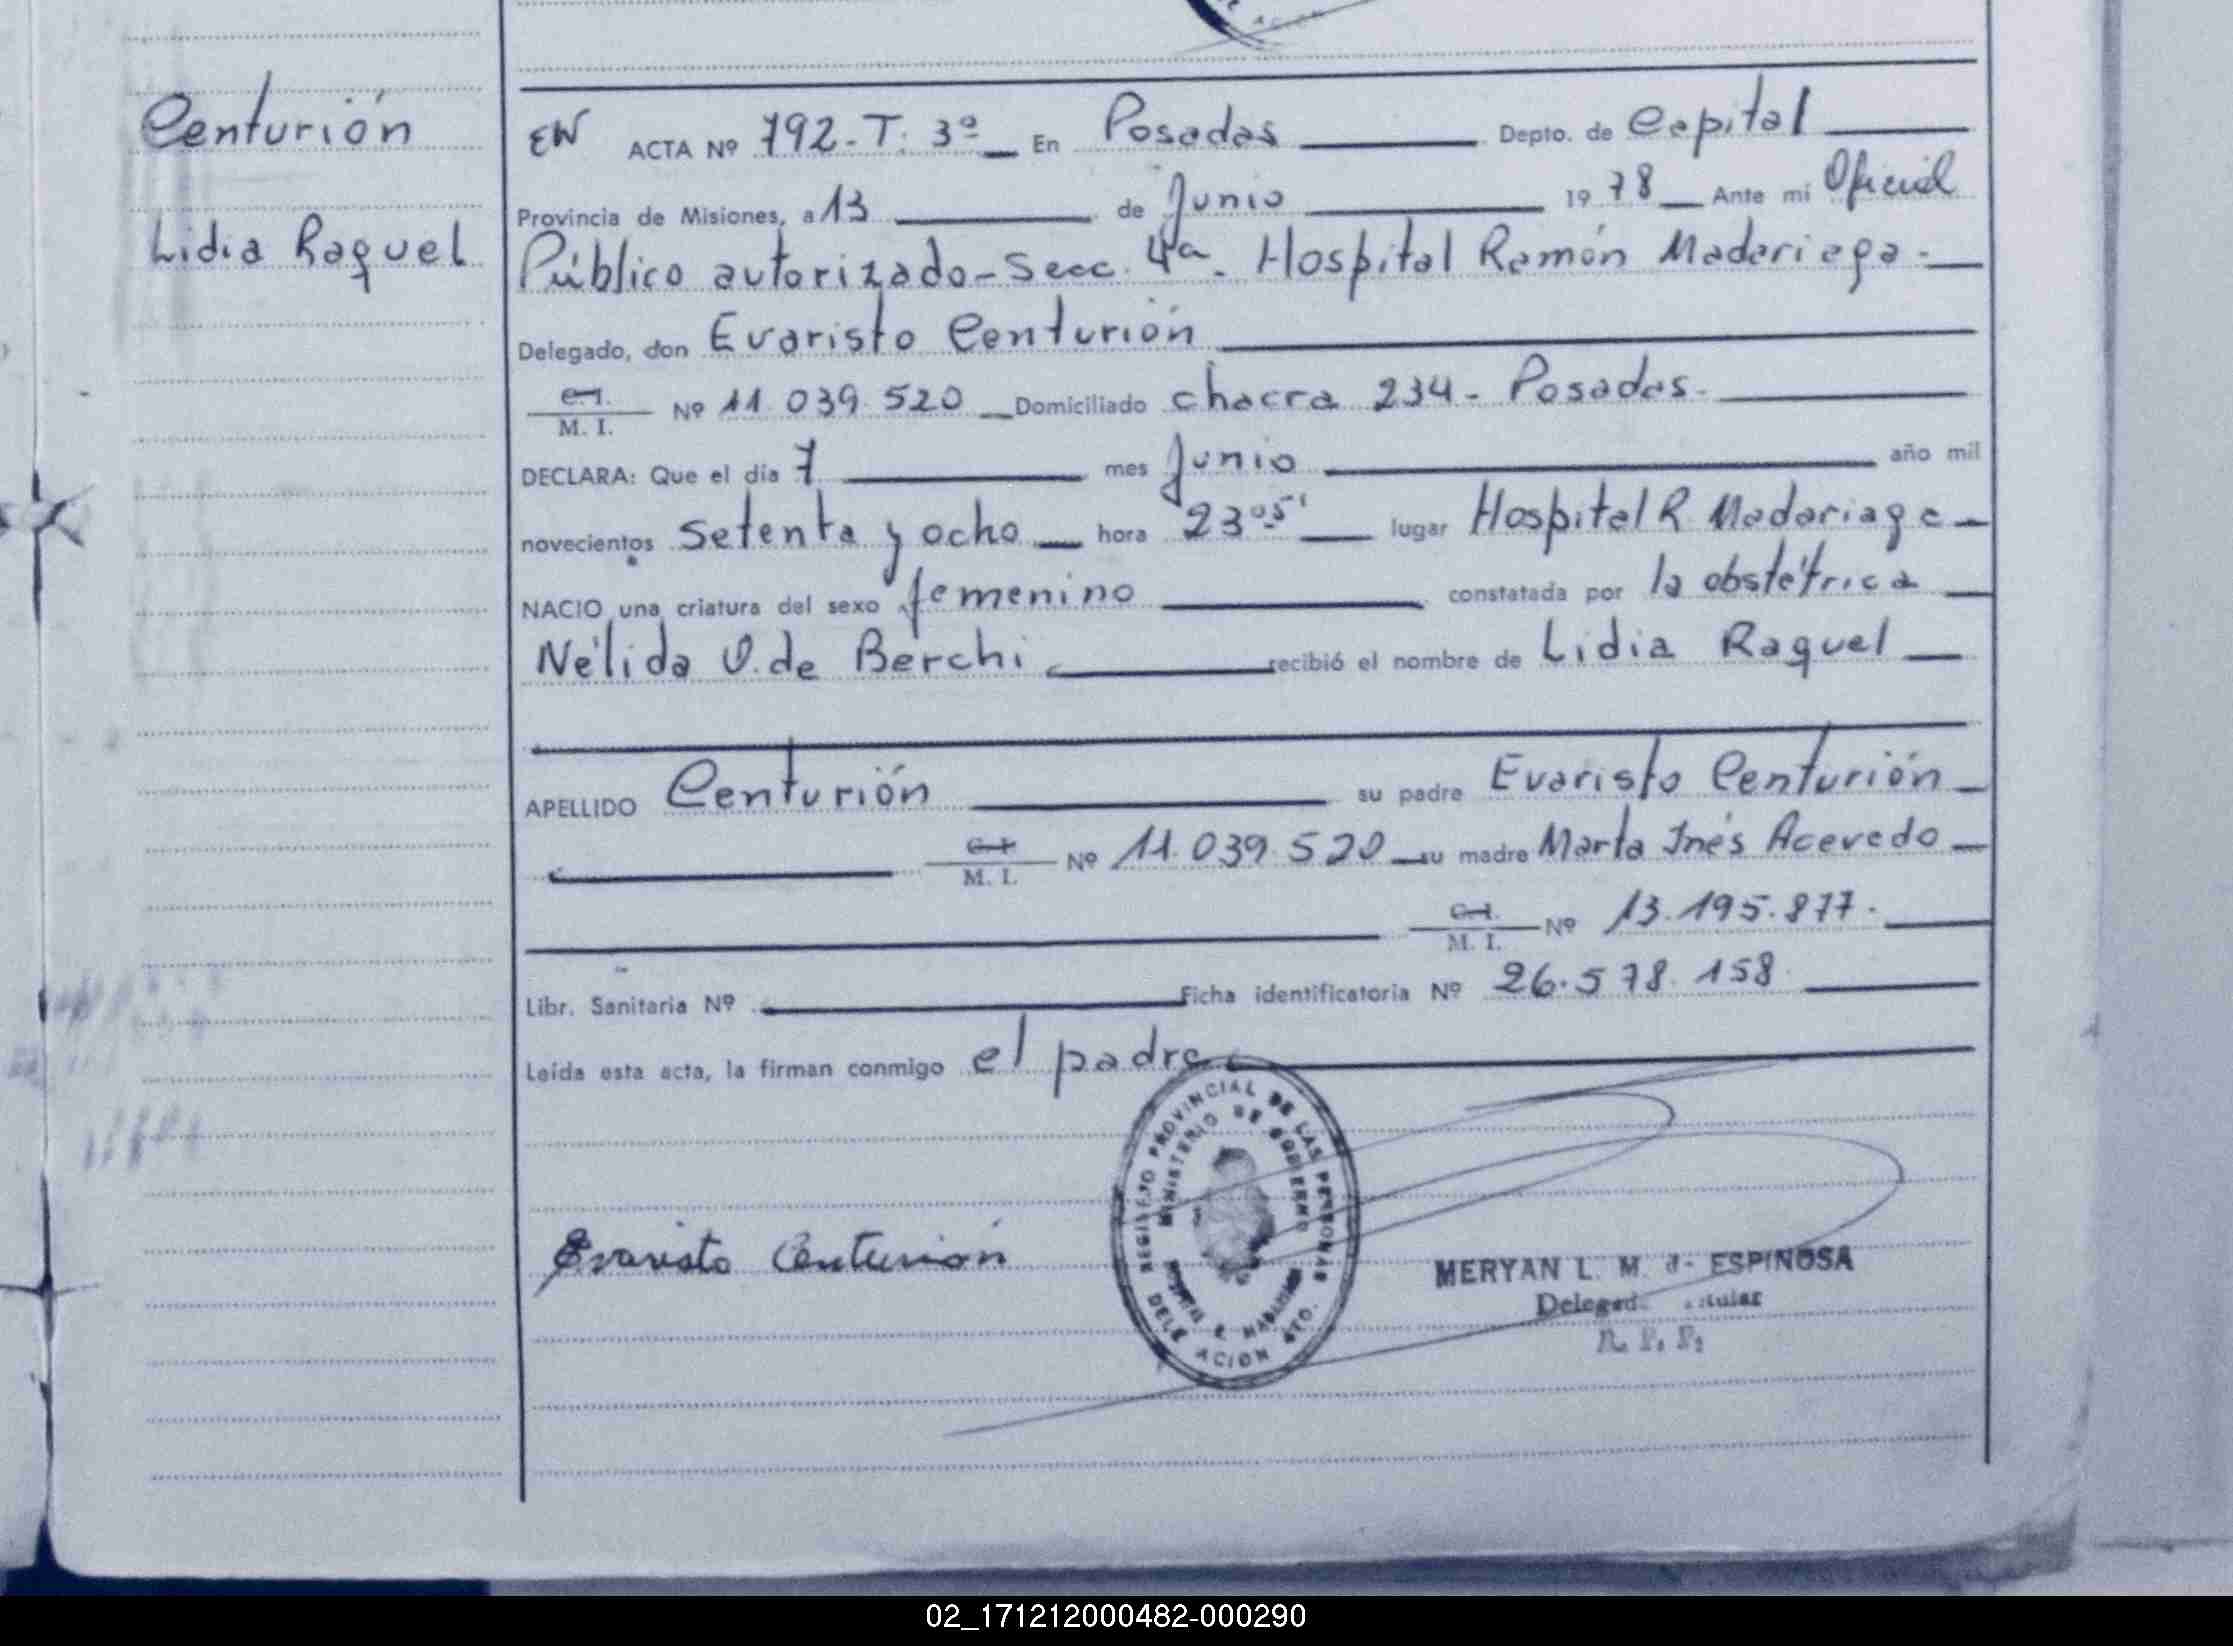 Centurión
Lidia Raquel
EW ACTA Nº 792-T. 3º En Posadas Depto. de Capital
Provincia de Misiones, a 13 de Junio 1978 Ante mí Oficial
Público autorizado-Secc. 4ª. Hospital Ramón Madariaga.
Delegado, don Evaristo Centurión
C.I. M. I. Nº 11.039.520 Domiciliado chacra 234- Posadas.
DECLARA: Que el día 7 mes Junio año mil
novecientos setenta y ocho hora 23 05' lugar Hospital R. Madariaga
NACIO una criatura del sexo femenino constatada por la obstétrica
Nélida V. de Berchi recibió el nombre de Lidia Raquel
APELLIDO Centurión su padre Evaristo Centurión
C.I. M. I. Nº 11.039.520 su madre Marta Inés Acevedo
C.I. M. I. Nº 13.195.877.
Libr. Sanitaria Nº Ficha identificatoria Nº 26.578.158
Leída esta acta, la firman conmigo el padre
REGISTRO PROVINCIAL DE LAS PERSONAS
MINISTERIO DE GOBIERNO
DELE ACION
Evaristo Centurión
MERYAN L. M. d- ESPINOSA
02_171212000482-000290